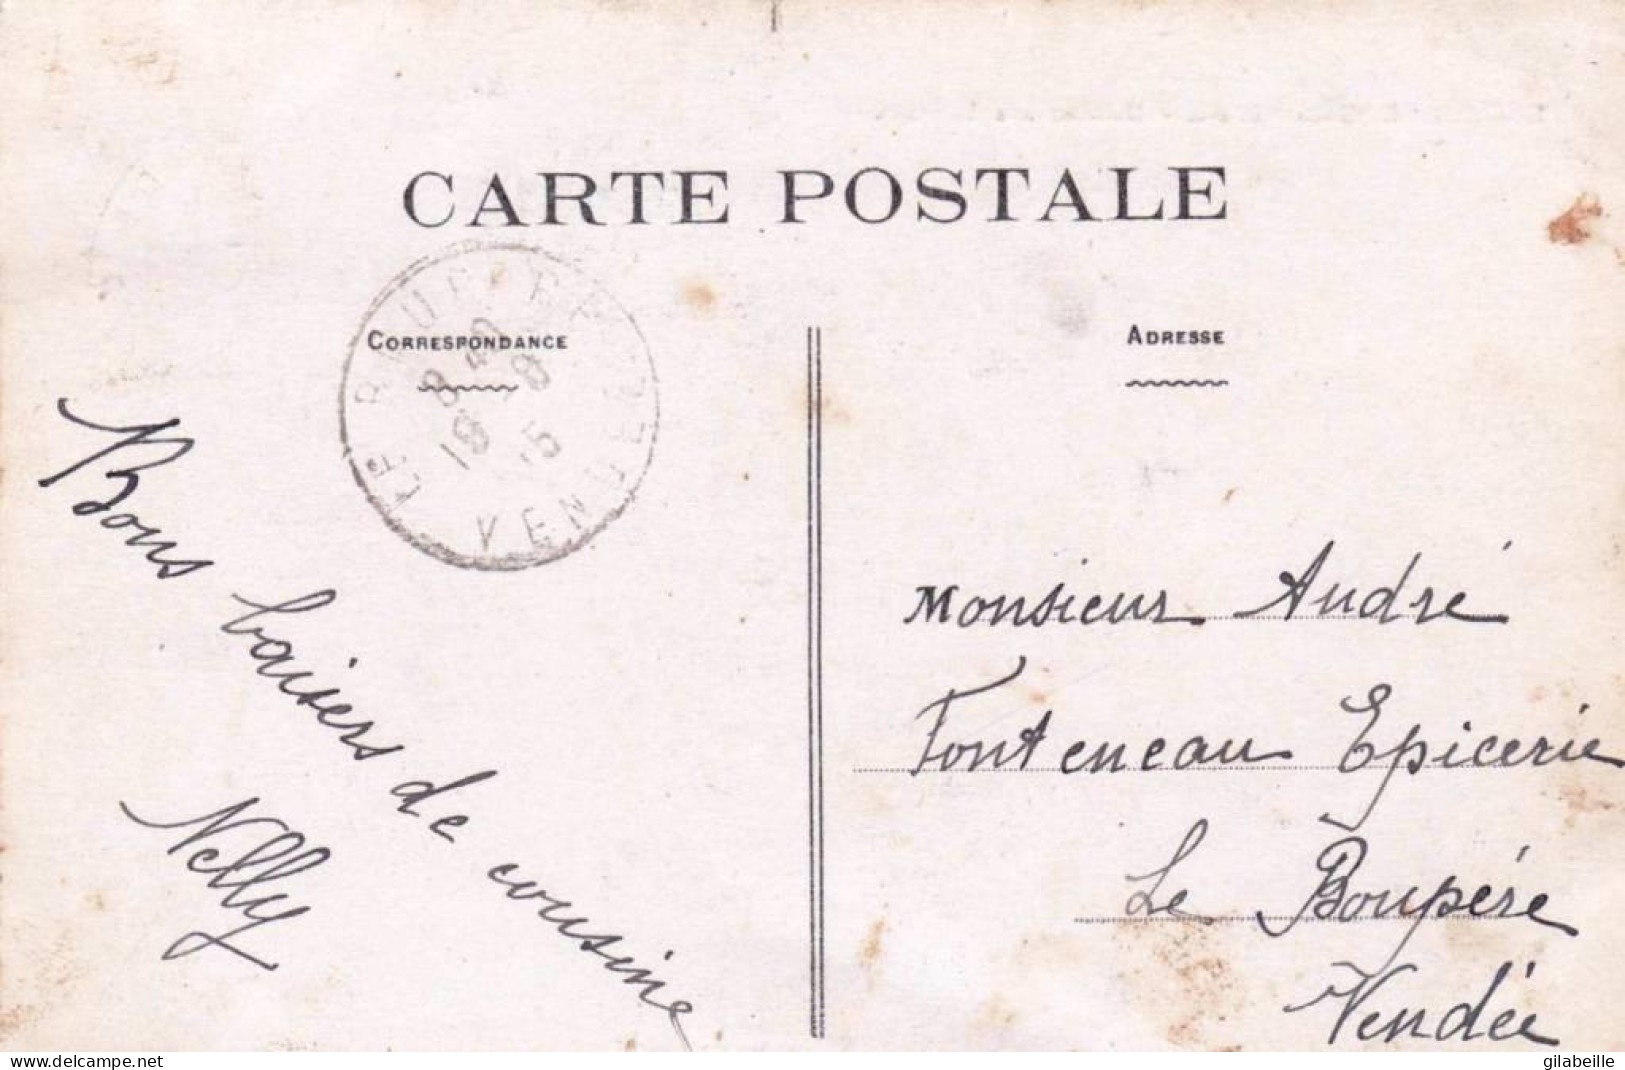 CARTE POSTALE
CORRESPONDANCE
ADRESSE
LE BOUPERE
VENDEE
Bons baisers de cousine
Nelly
Monsieur André
Fonteneau Epicerie
Le Boupère
Vendée
www.delcampe.net
gilabeille